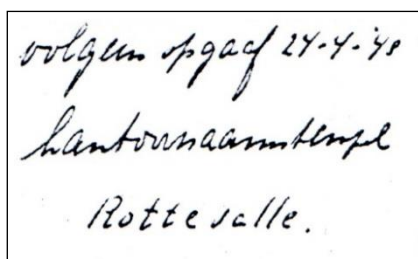 volgens opgaaf 24-4-'48
kantoornaamstempel
Rottevalle.